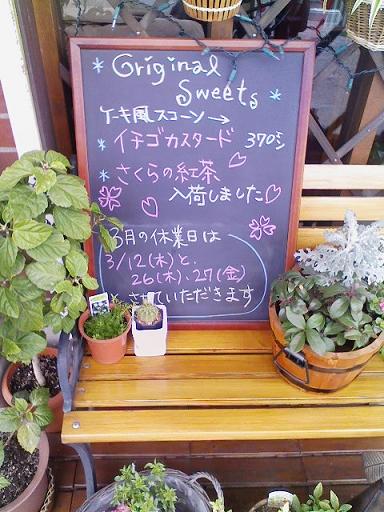 Original
Sweets
ケーキ風スコーン→
イチゴカスタード 370
さくらの紅茶
入荷しました
3月の休業日は
3/12(木)と、
26(木)、27(金)
させていただきます